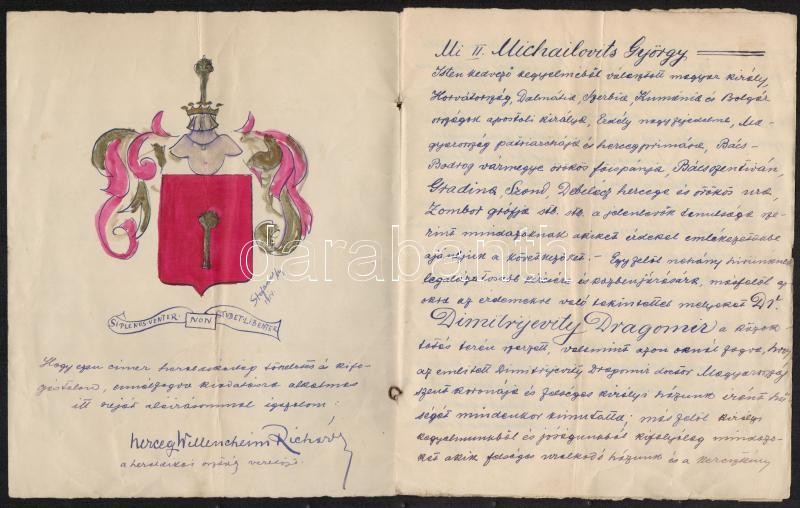 SI PLENUS VENTER NON STUDET LIBENTER
Hogy ezen címer heraldikailag tökéletes és kifo-
gástalan, ennélfogva kiadására alkalmas
itt saját aláírásommal igazolom:
herceg Willencheim Richárd
a heraldikai osztály vezetője.
Mi II. Michailovits György
Isten kedvező kegyelméből választott magyar király,
Horvátország, Dalmátia, Szerbia Kumánia és Bolgár
országok apostoli királya, Erdély nagyfejedelme, Ma-
gyarország patriarchája és hercegprimása, Bács-
Bodrog vármegye örökös főispánja, Bácsszentiván,
Gradina, Szond Debelács hercege és örökös ura,
Zombor grófja stb. stb. a jelenlevők tanulsága sze-
rint mindazoknak akiket érdekel emlékezetébe
ajánljuk a következőket: - Egyfelől néhány hivünknek
legalázatosabb kérésére és közbenjárására, másfelől az
okból az érdemekre való tekintettel melyeket Dr.
Dimitrijevity Dragomir a közok-
tatás terén szerzett, valamint azon oknál fogva, hogy
az említett Dimitrijevity Dragomir doctor Magyarország
szent koronája és felséges királyi házunk iránt hű-
ségét mindenkor kimutatta; másfelől királyi
kegyelmünkből és jóságunkból kifolyólag mindazo-
kat akik felséges uralkodó házunk és a keresztény
darabanth.com